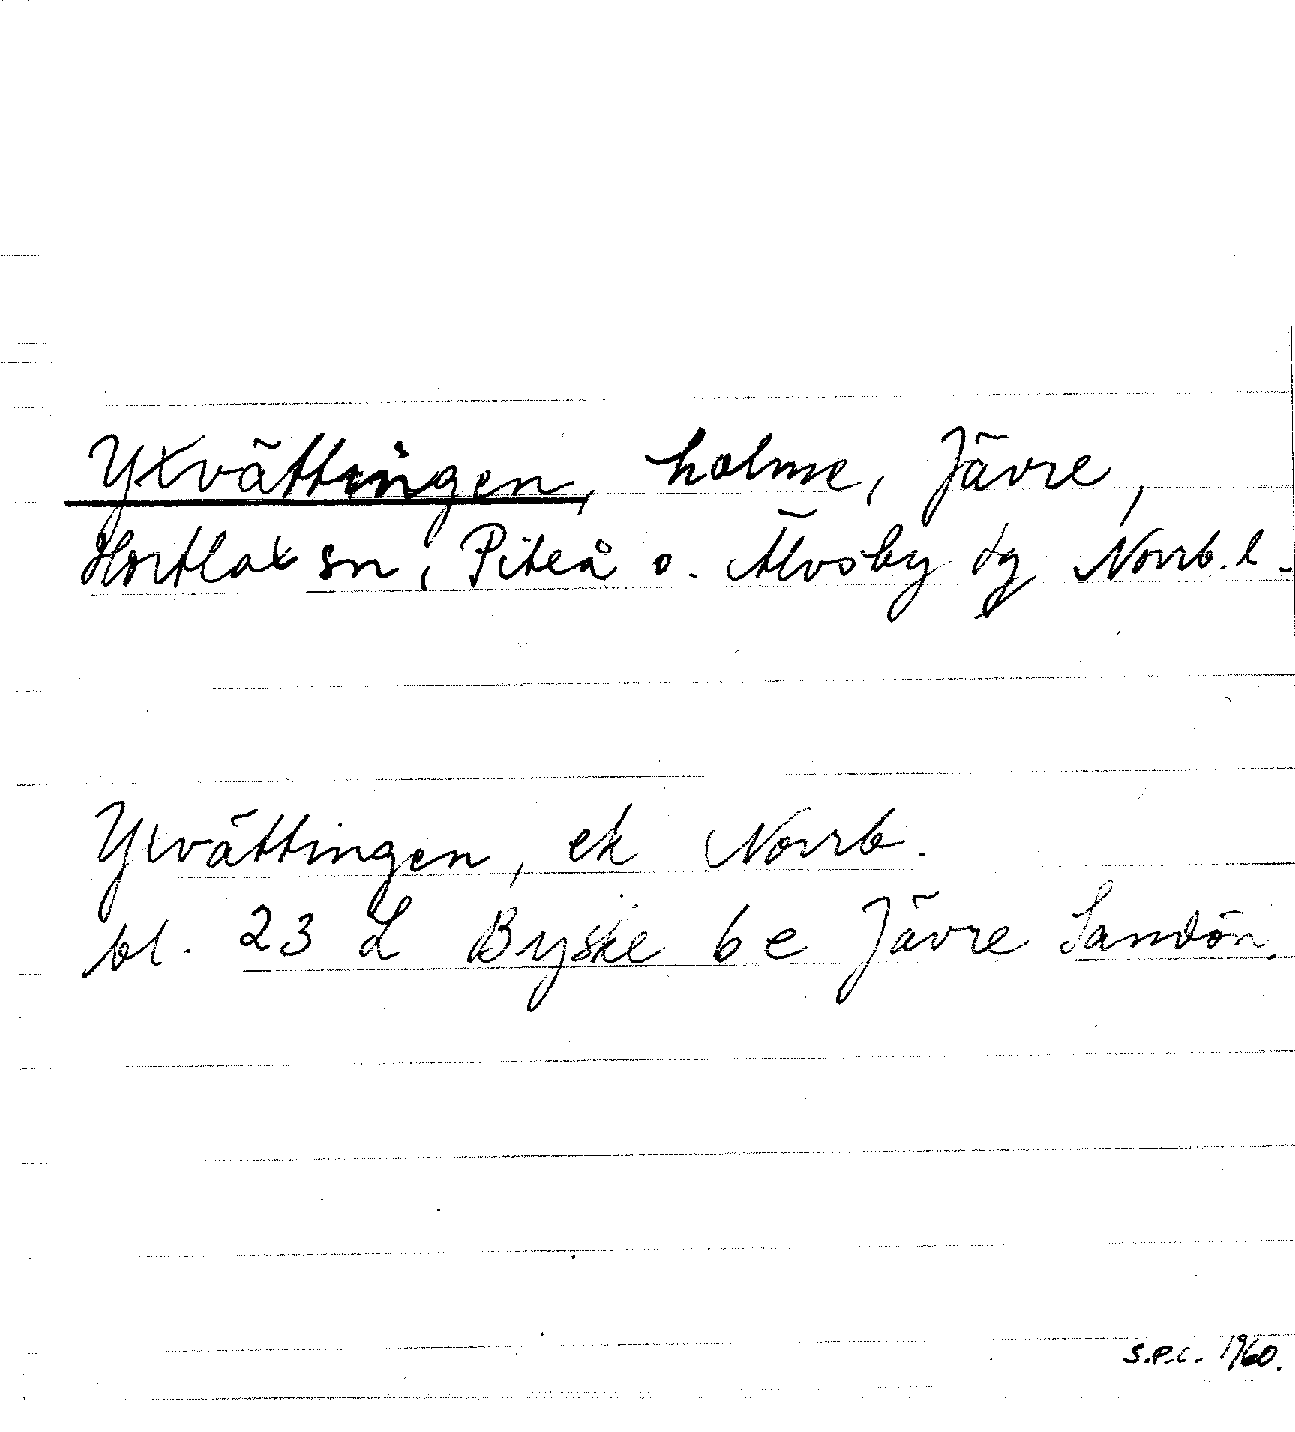 Yxvättingen, holme, Jävre,
Hortlax sn, Piteå o. Älvsby tg Norrb. l.
Yxvättingen, ek Norrb.
bl. 23 L Byske 6e Jävre Sandön.
S.P.C. 1960.